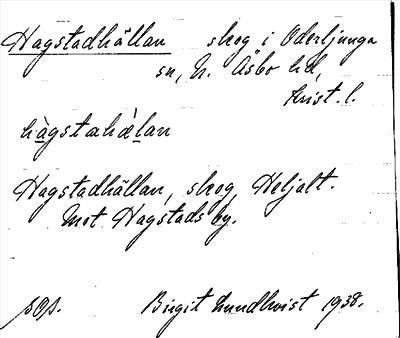 Hagstadhällan skog i Oderljunga
sn, N. Åsbo hd,
Krist. l.
hàgstahǽlan
Hagstadhällan, skog, Heljalt.
Mot Hagstads by.
sOp. Birgit Lundkvist 1938.